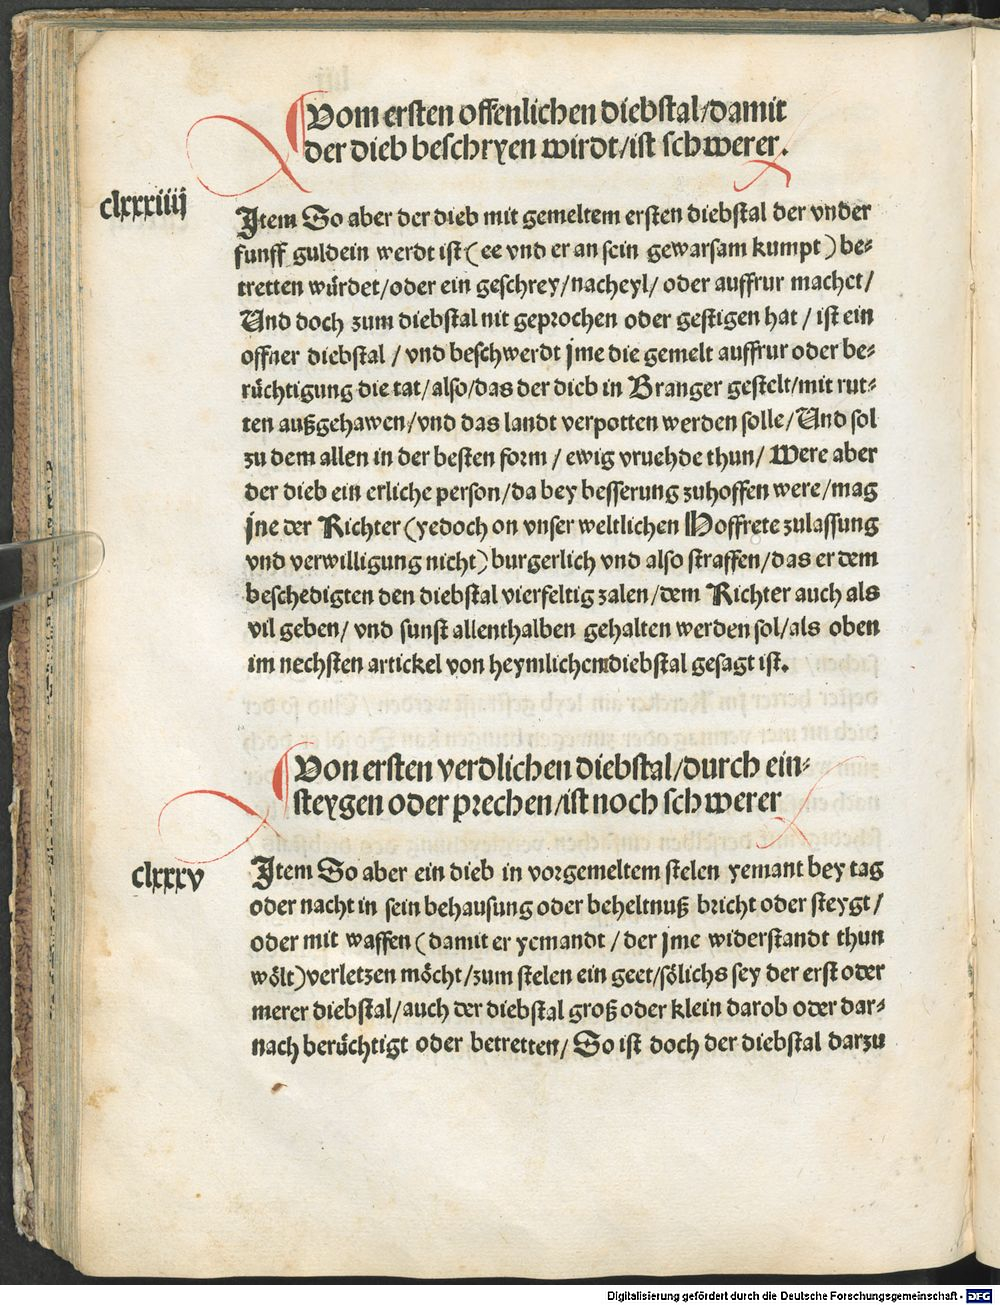 Vom ersten offenlichen diebstal/damit
der dieb beschryen wirdt/ist schwerer.
clxxxiiij
Item So aber der dieb mit gemeltem ersten diebstal der vnder
funff guldein werdt ist (ee vnd er an sein gewarsam kumpt) be-
tretten würdet/oder ein geschrey/nacheyl/ oder auffrur machet/
Und doch zum diebstal nit geprochen oder gestigen hat / ist ein
offner diebstal / vnd beschwerdt jme die gemelt auffrur oder be-
rüchtigung die tat/also/das der dieb in Branger gestelt/mit rut-
ten außgehawen/vnd das landt verpotten werden solle/Und sol
zu dem allen in der besten form / ewig vruehde thun/ Were aber
der dieb ein erliche person/da bey besserung zuhoffen were/mag
jne der Richter (yedoch on vnser weltlichen Hoffrete zulassung
vnd verwilligung nicht) burgerlich vnd also straffen/das er dem
beschedigten den diebstal vierfeltig zalen/dem Richter auch als
vil geben/ vnd sunst allenthalben gehalten werden sol/als oben
im nechsten artickel von heymlichem diebstal gesagt ist.
Von ersten verdlichen diebstal/durch ein-
steygen oder prechen/ist noch schwerer
clxxxv
Item So aber ein dieb in vorgemeltem stelen yemant bey tag
oder nacht in sein behausung oder beheltnuß bricht oder steygt/
oder mit waffen (damit er yemandt / der jme widerstandt thun
wölt) verletzen möcht/zum stelen ein geet/sölichs sey der erst oder
merer diebstal/auch der diebstal groß oder klein darob oder dar-
nach berüchtigt oder betretten/ So ist doch der diebstal darzu
Digitalisierung gefördert durch die Deutsche Forschungsgemeinschaft - DFG